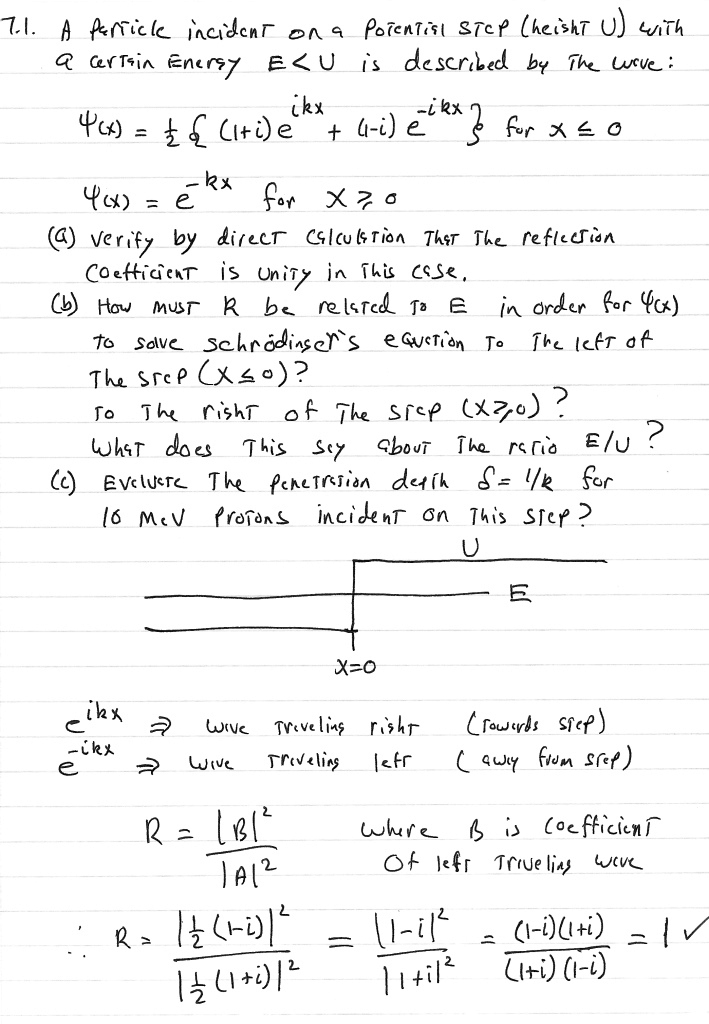 7.1. A particle incident on a potential step (height U) with
a certain Energy E<U is described by the wave:
Ψ(x) = ½ { (1+i) e^{ikx} + (1-i) e^{-ikx} } for x ≤ 0
Ψ(x) = e^{-kx} for x ≥ 0
(a) Verify by direct calculation that the reflection
coefficient is unity in this case.
(b) How must k be related to E in order for Ψ(x)
to solve schrödinger's equation to the left of
the step (x≤0)?
To the right of the step (x≥0)?
What does this say about the ratio E/U?
(c) Evaluate the penetration depth δ = 1/k for
10 MeV protons incident on this step?
U
E
x=0
e^{ikx} ⇒ wave traveling right (towards step)
e^{-ikx} ⇒ wave traveling left (away from step)
R = |B|² / |A|² where B is coefficient
of left traveling wave
∴ R = |½(1-i)|² / |½(1+i)|² = |1-i|² / |1+i|² = (1-i)(1+i) / (1+i)(1-i) = 1 ✓